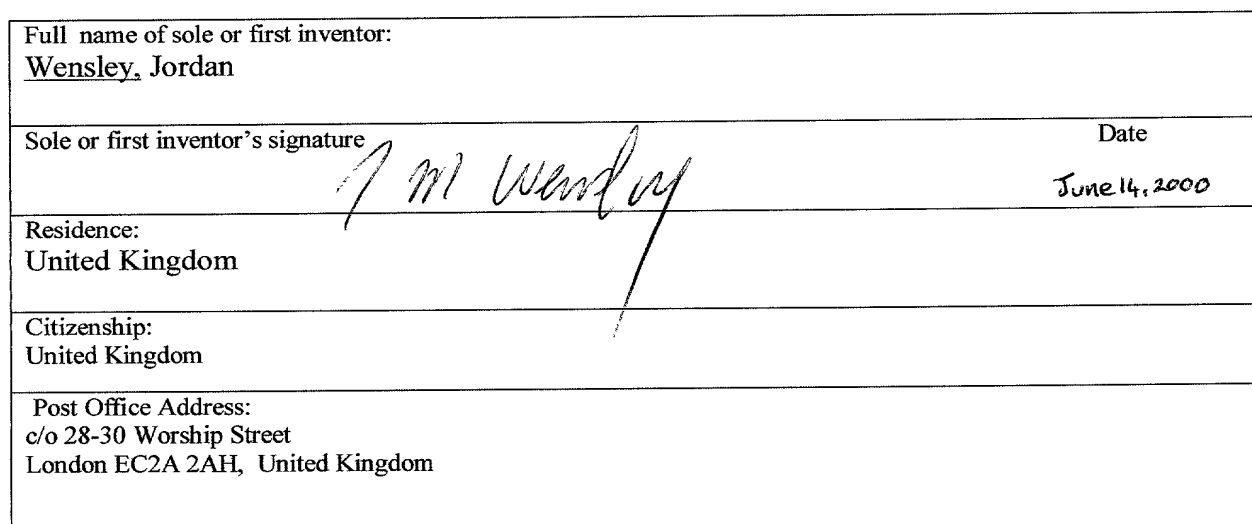 Full name of sole or first inventor:
Wensley, Jordan
Sole or first inventor's signature
Date
J M Wensley
June 14, 2000
Residence:
United Kingdom
Citizenship:
United Kingdom
Post Office Address:
c/o 28-30 Worship Street
London EC2A 2AH, United Kingdom